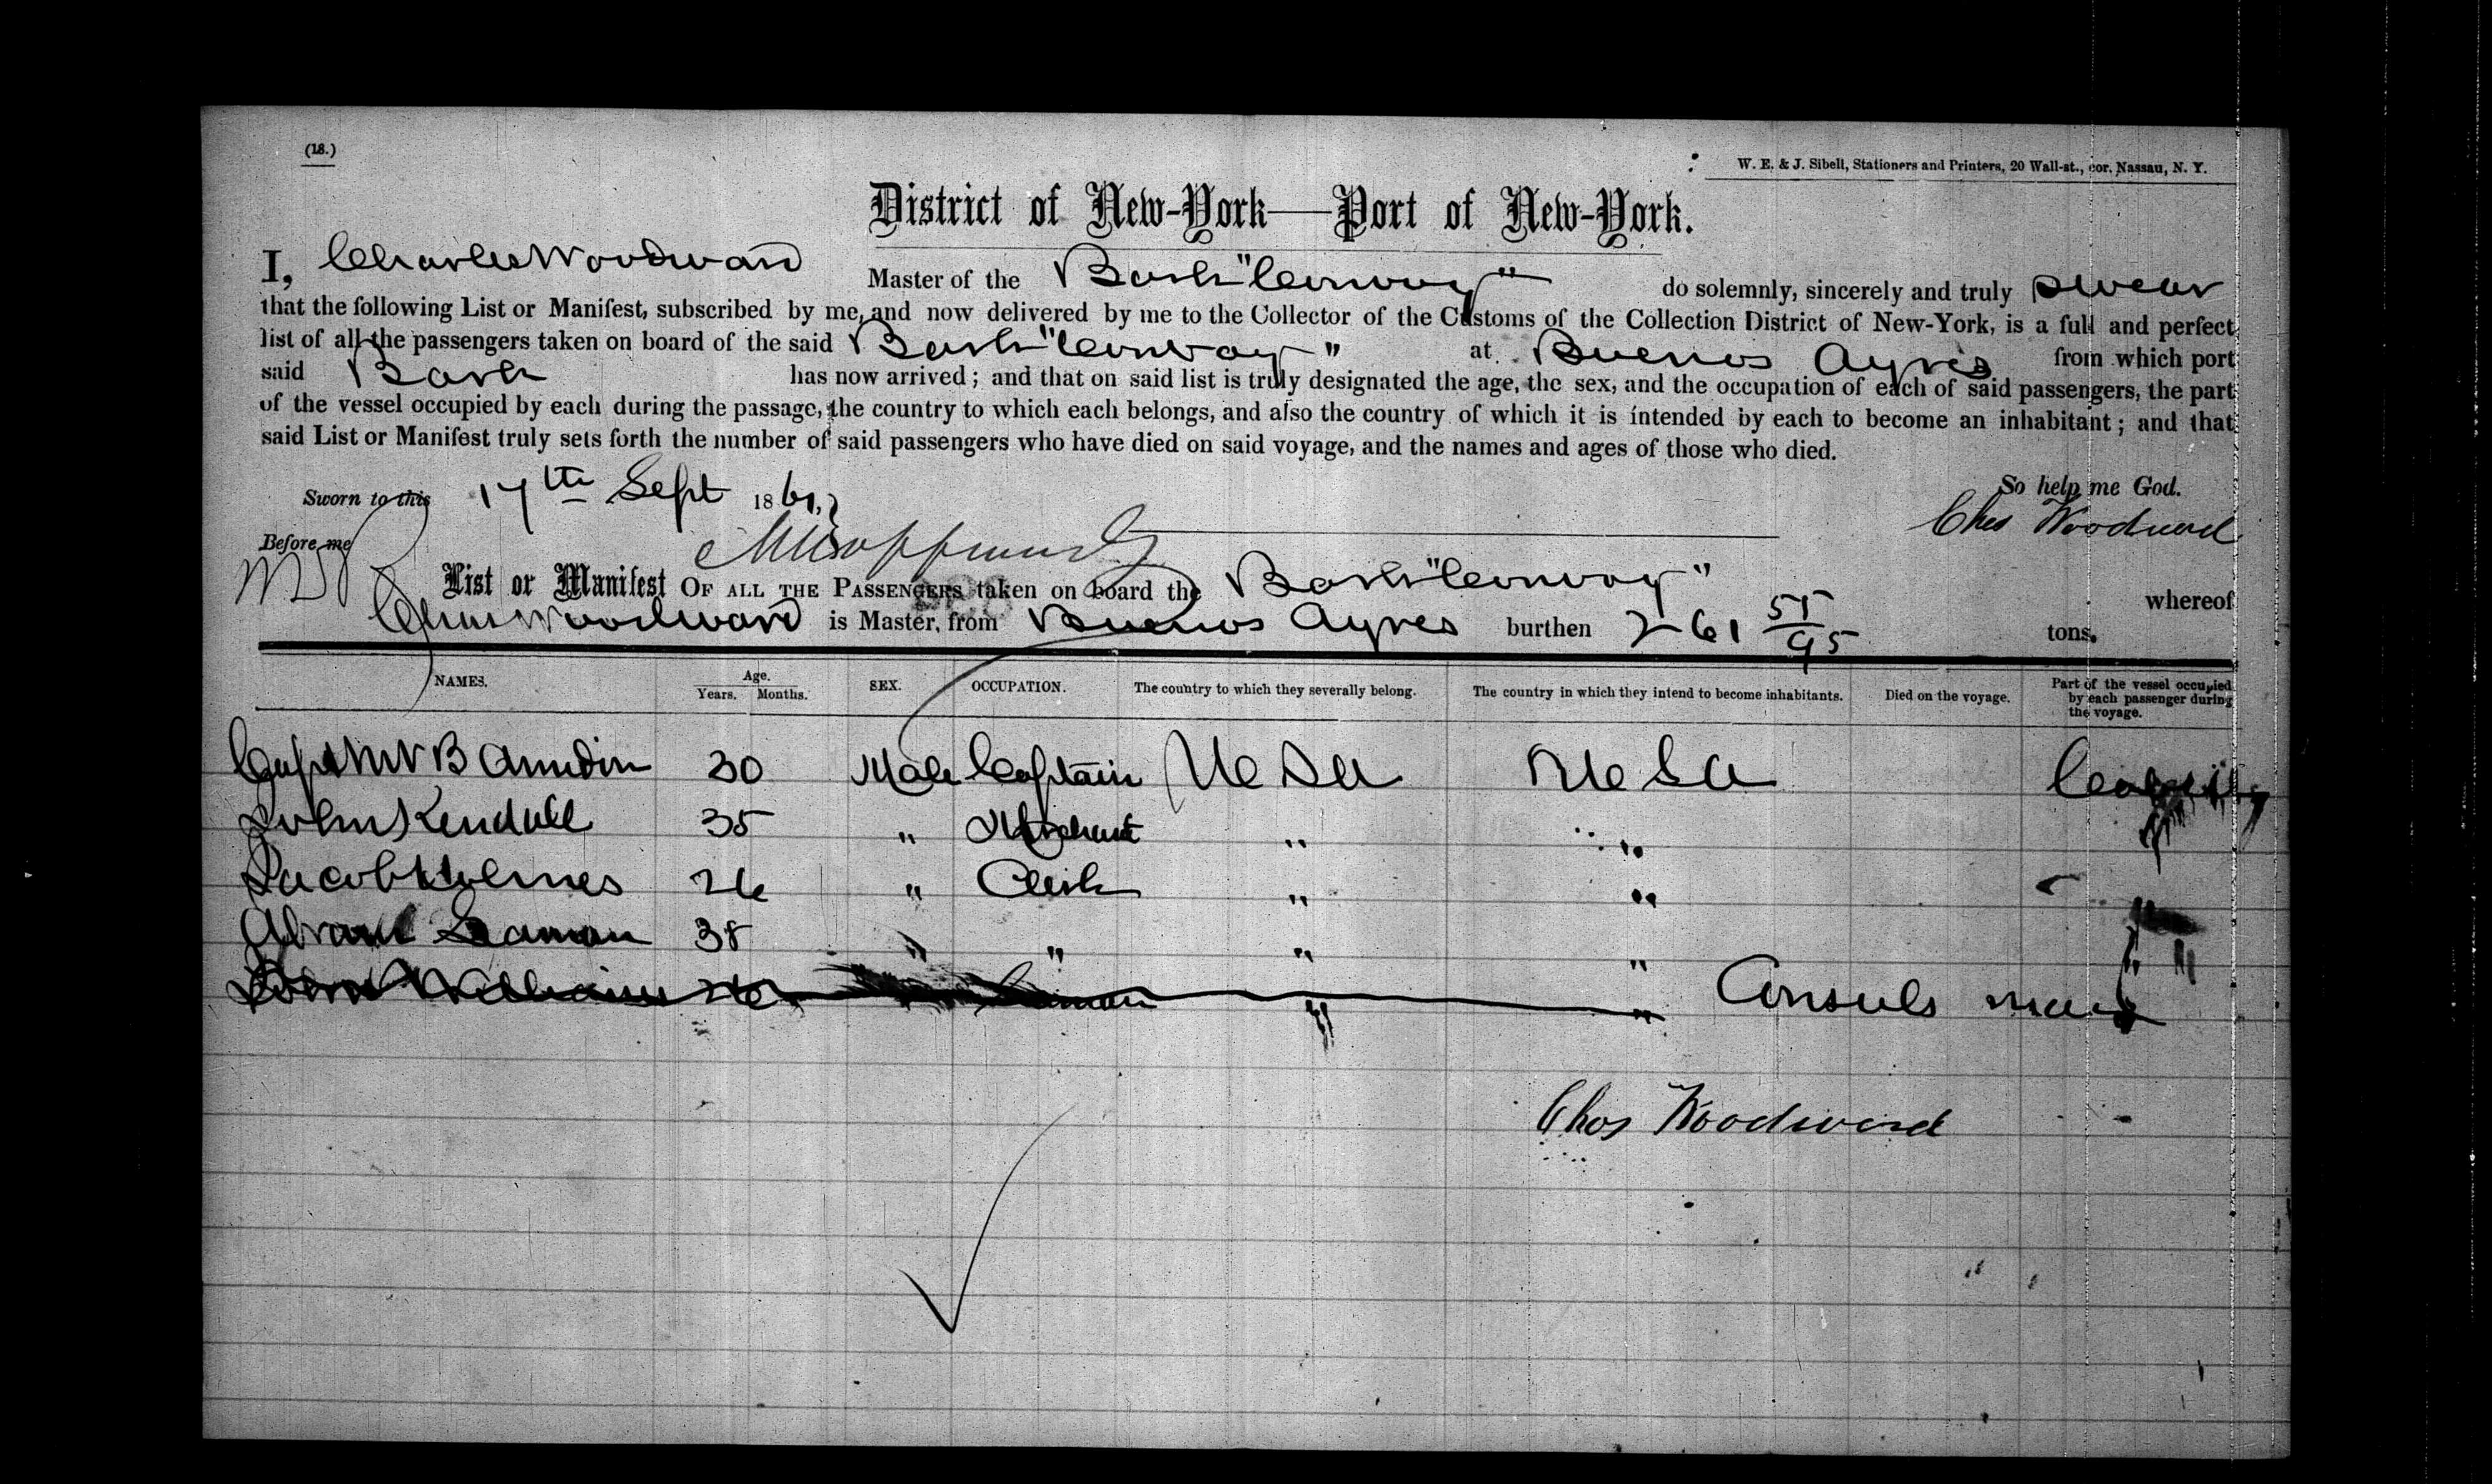 (18.)
W. E. & J. Sibell, Stationers and Printers, 20 Wall-st., cor. Nassau, N. Y.
District of New-York—Port of New-York.
I, Charles Woodward Master of the Bark "Conway" do solemnly, sincerely and truly swear
that the following List or Manifest, subscribed by me, and now delivered by me to the Collector of the Customs of the Collection District of New-York, is a full and perfect
list of all the passengers taken on board of the said Bark "Conway" at Buenos Ayres from which port
said Bark has now arrived; and that on said list is truly designated the age, the sex, and the occupation of each of said passengers, the part
of the vessel occupied by each during the passage, the country to which each belongs, and also the country of which it is intended by each to become an inhabitant; and that
said List or Manifest truly sets forth the number of said passengers who have died on said voyage, and the names and ages of those who died.
Sworn to this 17th Sept 1861, So help me God.
Chas Woodward
Before me
List or Manifest OF ALL THE PASSENGERS taken on board the Bark "Conway" whereof
Chas Woodward is Master, from Buenos Ayres burthen 261 55/95 tons.
NAMES. Age. Years. Months. SEX. OCCUPATION. The country to which they severally belong. The country in which they intend to become inhabitants. Died on the voyage. Part of the vessel occupied by each passenger during the voyage.
Capt B 30 Male Captain U S A U S A
John Kendall 35 " Merchant " "
Jacob Holmes 26 " Clerk " "
Abram Seaman 38 " " " " "
John Williams 26 Seaman " " Consuls man
Chas Woodward